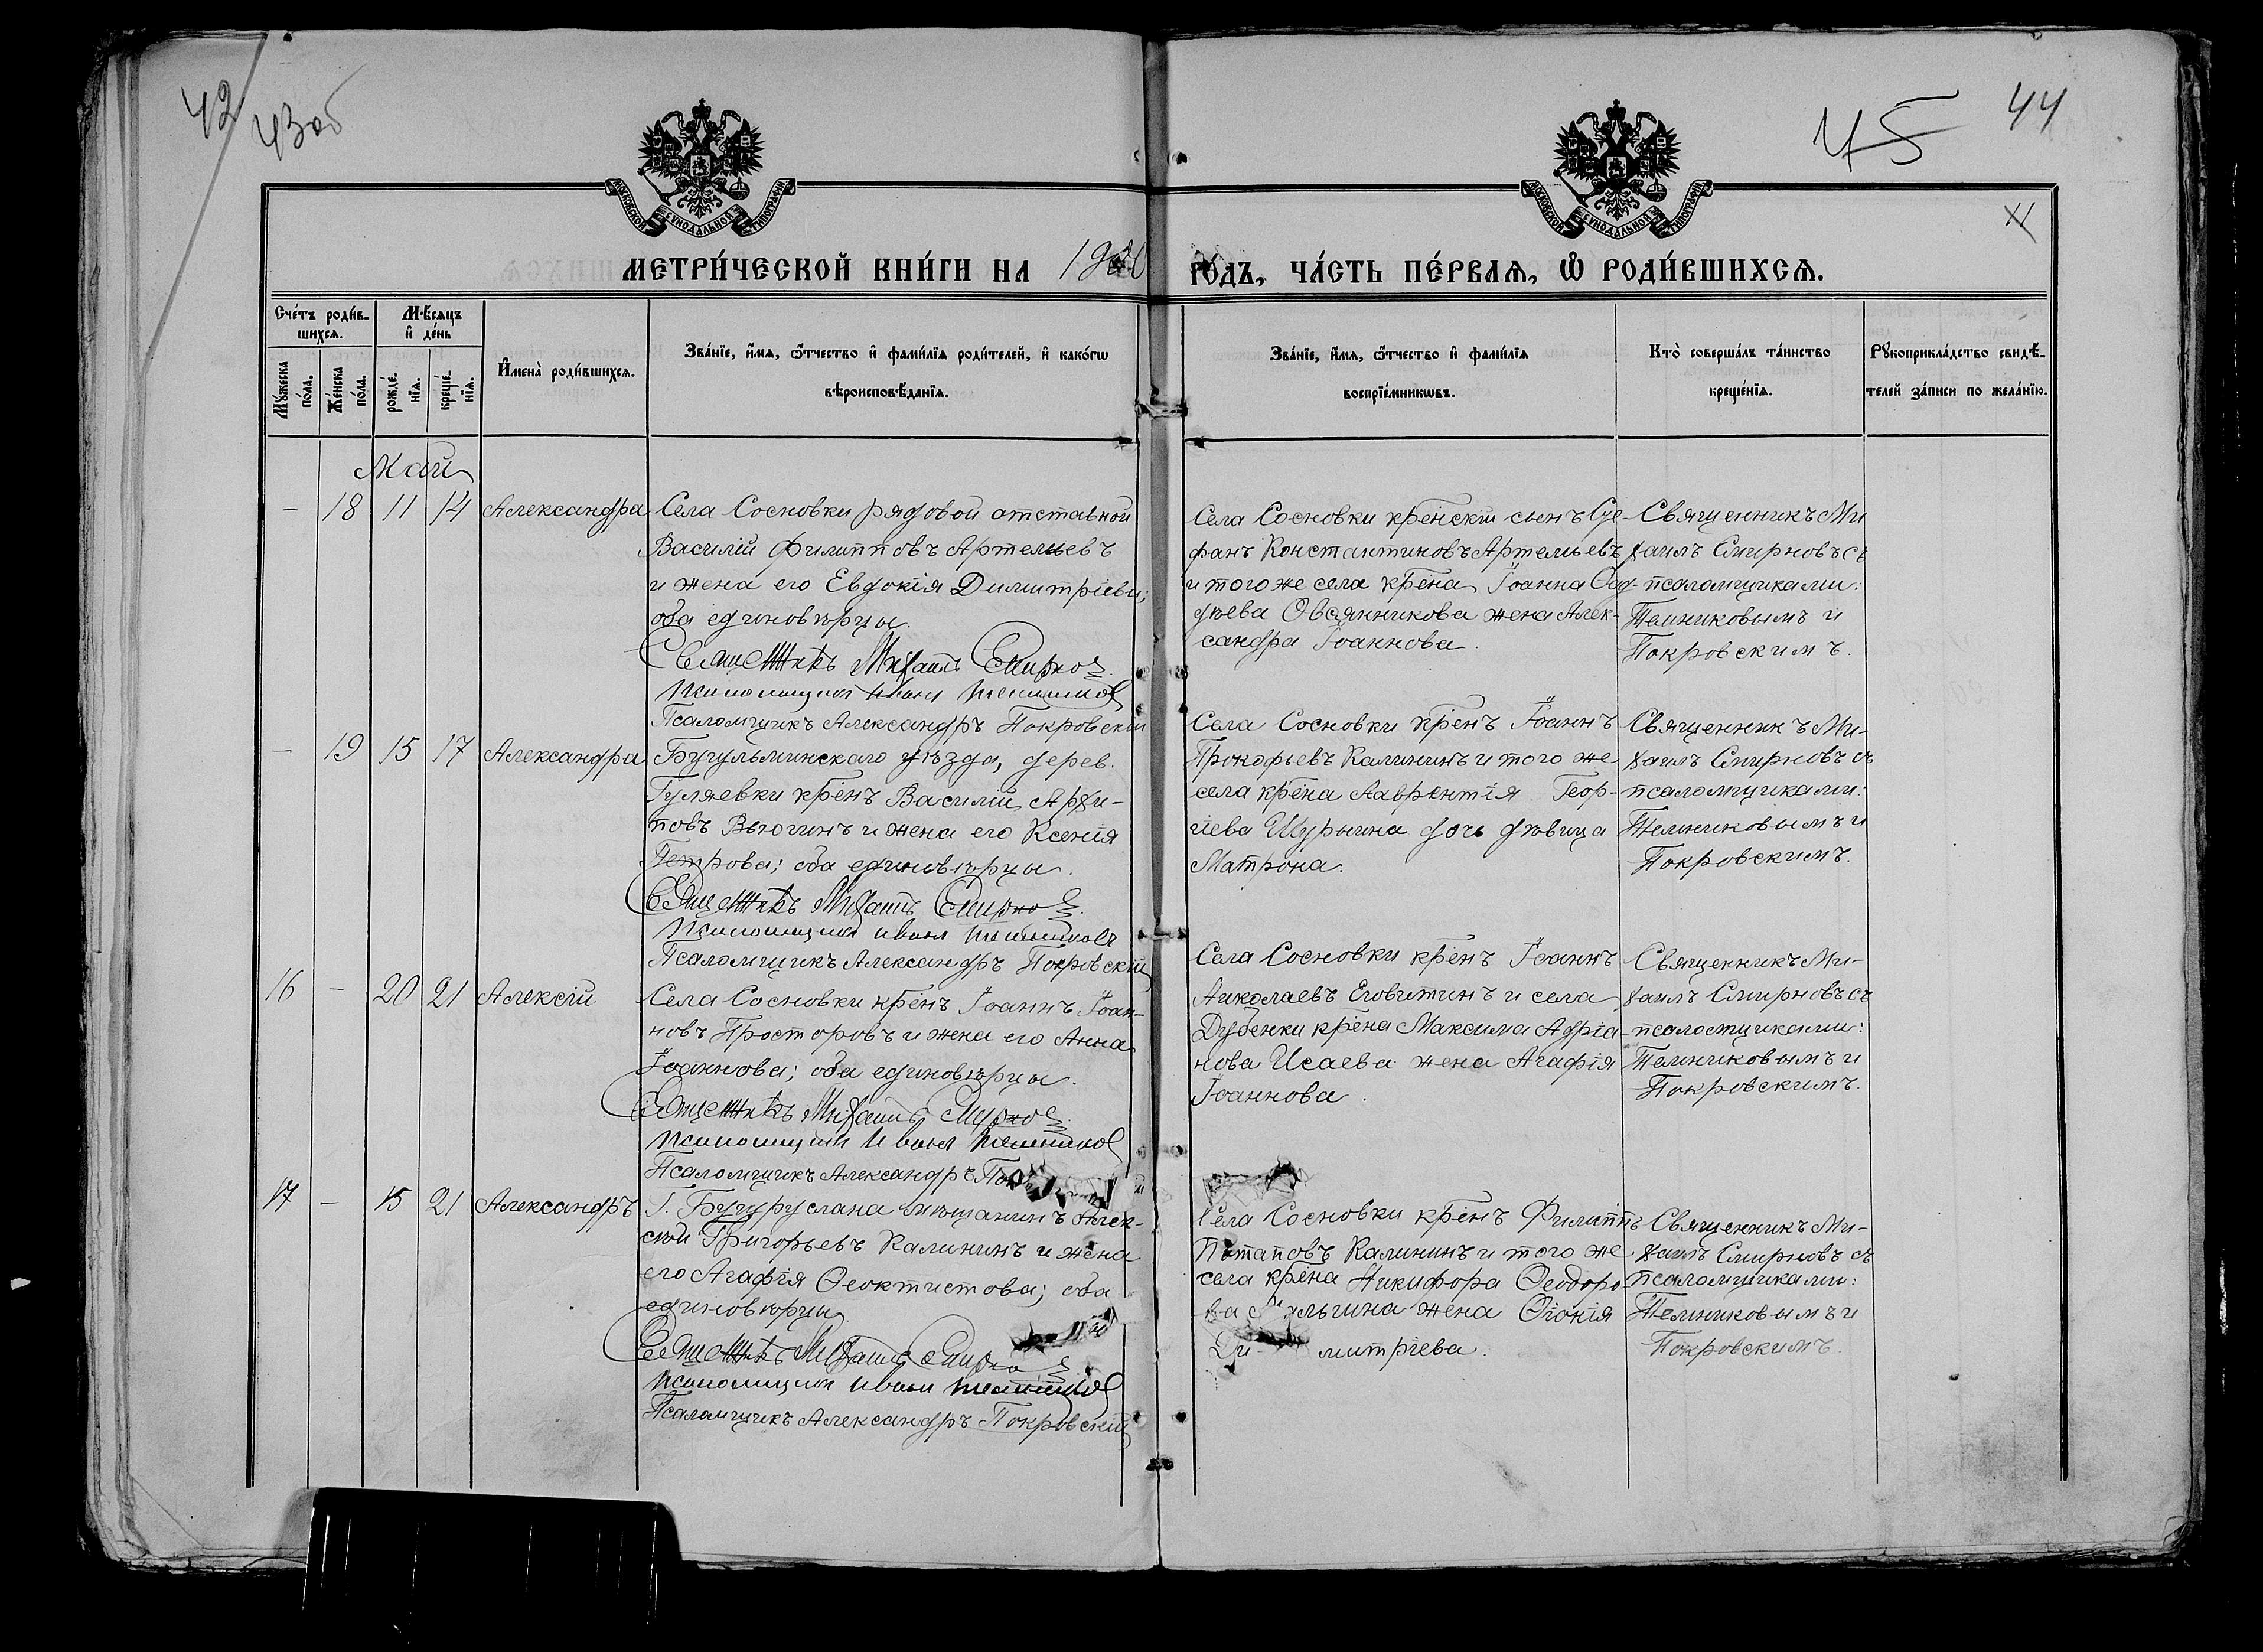 42 43об
45 44
МОСКОВСКОЙ СУНОДАЛЬНОЙ ТИПОГРАФІИ
МОСКОВСКОЙ СУНОДАЛЬНОЙ ТИПОГРАФІИ
МЕТРИ́ЧЕСКОЙ КНИ́ГИ НА 19 ГОДЪ, ЧА́СТЬ ПЕ́РВАЯ, Ѽ РОДИ́ВШИХСЯ.
Сче́тъ роди́в-
шихся.
Мѣ́сяцъ
и҆ де́нь
Му́жеска по́ла.
Же́нска по́ла.
рожде́-
нїя.
креще́-
нїя.
И҆мена̀ роди́вшихся.
Зва́нїе, и҆́мя, ѻ҆́тчество и҆ фами́лїя роди́телей, и҆ како́гѡ
вѣроисповѣ́данїя.
Зва́нїе, и҆́мя, ѻ҆́тчество и҆ фами́лїя
воспрїе́мникѡвъ.
Кто̀ соверша́лъ та́инство
креще́нїя.
Рꙋкоприкла́дство свидѣ́-
телей за́писи по жела́нїю.
Май
- 18 11 14 Александра
Села Сосновки рядовой отставной
Василій Филипповъ Артемьевъ
и жена его Евдокія Димитріева;
оба единовѣрцы.
Священникъ Михаилъ Смирновъ
Псаломщикъ Иванъ Темниковъ
Псаломщикъ Александръ Покровскій
Села Сосновки кренскій сынъ Сте-
фанъ Константиновъ Артемьевъ
и того же села крена Іоанна Фад-
дѣева Овсянникова жена Алек-
сандра Іоаннова.
Священникъ Ми
хаилъ Смирновъ съ
псаломщиками:
Темниковымъ и
Покровскимъ.
- 19 15 17 Александра
Бугульминскаго уѣзда, дерев.
Гуляевки кренъ Василій Архи-
повъ Вьюгинъ и жена его Ксенія
Петрова; оба единовѣрцы.
Священникъ Михаилъ Смирновъ
Псаломщикъ Иванъ Темниковъ
Псаломщикъ Александръ Покровскій
Села Сосновки кренъ Іоаннъ
Прокофьевъ Калининъ и того же
села крена Лаврентія Геор-
гіева Шурыгина дочь дѣвица
Матрона.
Священникъ Ми-
хаилъ Смирновъ съ
псаломщиками:
Темниковымъ и
Покровскимъ.
16 - 20 21 Алексій
Села Сосновки кренъ Іоаннъ Іоан-
новъ Просторовъ и жена его Анна
Іоаннова; оба единовѣрцы.
Священникъ Михаилъ Смирновъ
Псаломщикъ Иванъ Темниковъ
Псаломщикъ Александръ
Села Сосновки кренъ Іоаннъ
Николаевъ и села
Дубенки крена Максима Адріа-
нова Исаева жена Агафія
Іоаннова.
Священникъ Ми-
хаилъ Смирновъ съ
псаломщиками:
Темниковымъ и
Покровскимъ.
17 - 15 21 Александръ
Г. Бугуруслана мѣщанинъ Алек-
сѣй Григорьевъ Калининъ и жена
его Агафія Феоктистова; оба
единовѣрцы
Священникъ Михаилъ Смирновъ
Псаломщикъ Иванъ Темниковъ
Псаломщикъ Александръ Покровскій
Села Сосновки кренъ Филиппъ
Потаповъ Калининъ и того же
села крена Никифора Ѳеодоро-
ва жена Ѳіонія
Ди- митріева.
Священникъ Ми-
хаилъ Смирновъ съ
псаломщиками:
Темниковымъ и
Покровскимъ.